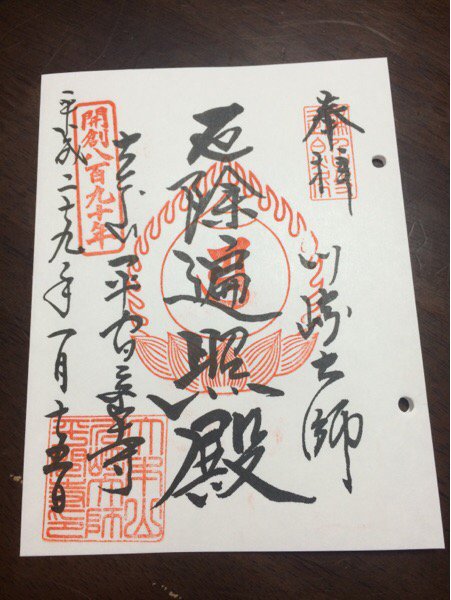 奉拝
川崎大師
厄除遍照殿
大本山平間寺
開創八百九十年
平成二十九年一月十五日